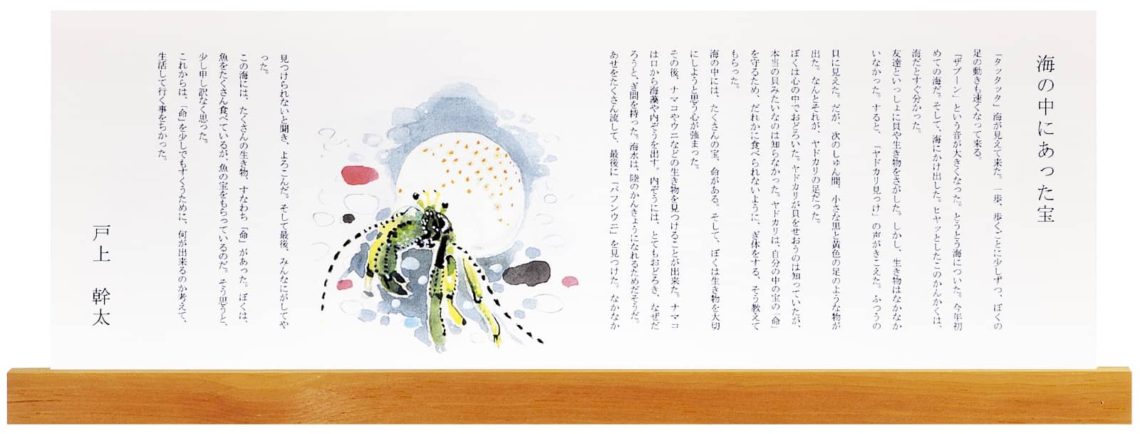 海の中にあった宝
「タッタッタ」海が見えて来た。一歩、歩くごとに少しずつ、ぼくの
足の動きも速くなって来る。
「ザブーン」という音が大きくなった。とうとう海についた。今年初
めての海だ。そして、海にかけ出した。ヒヤッとしたこのかんかくは、
海だとすぐ分かった。
友達といっしょに貝や生き物をさがした。しかし、生き物はなかなか
いなかった。すると、「ヤドカリ見っけ」の声がきこえた。ふつうの
貝に見えた。だが、次のしゅん間、小さな黒と黄色の足のような物が
出た。なんとそれが、ヤドカリの足だった。
ぼくは心の中でおどろいた。ヤドカリが貝をせおうのは知っていたが、
本当の貝みたいなのは知らなかった。ヤドカリは、自分の中の宝の「命」
を守るため、だれかに食べられないように、ぎ体をする。そう教えて
もらった。
海の中には、たくさんの宝、命がある。そして、ぼくは生き物を大切
にしようと思う心が強まった。
その後、ナマコやウニなどの生き物を見つけることが出来た。ナマコ
は口から海藻や内ぞうを出す。内ぞうには、とてもおどろき、なぜだ
ろうと、ぎ問を持った。海水は、陸のかんきょうになれるためだそうだ。
あせをたくさん流して、最後に「バフンウニ」を見つけた。なかなか
見つけられないと聞き、よろこんだ。そして最後、みんなにがしてや
った。
この海には、たくさんの生き物、すなわち「命」があった。ぼくは、
魚をたくさん食べているが、魚の宝をもらっているのだ。そう思うと、
少し申し訳なく思った。
これからは、「命」を少しでもすくうために、何が出来るのか考えて、
生活して行く事をちかった。
戸上 幹太